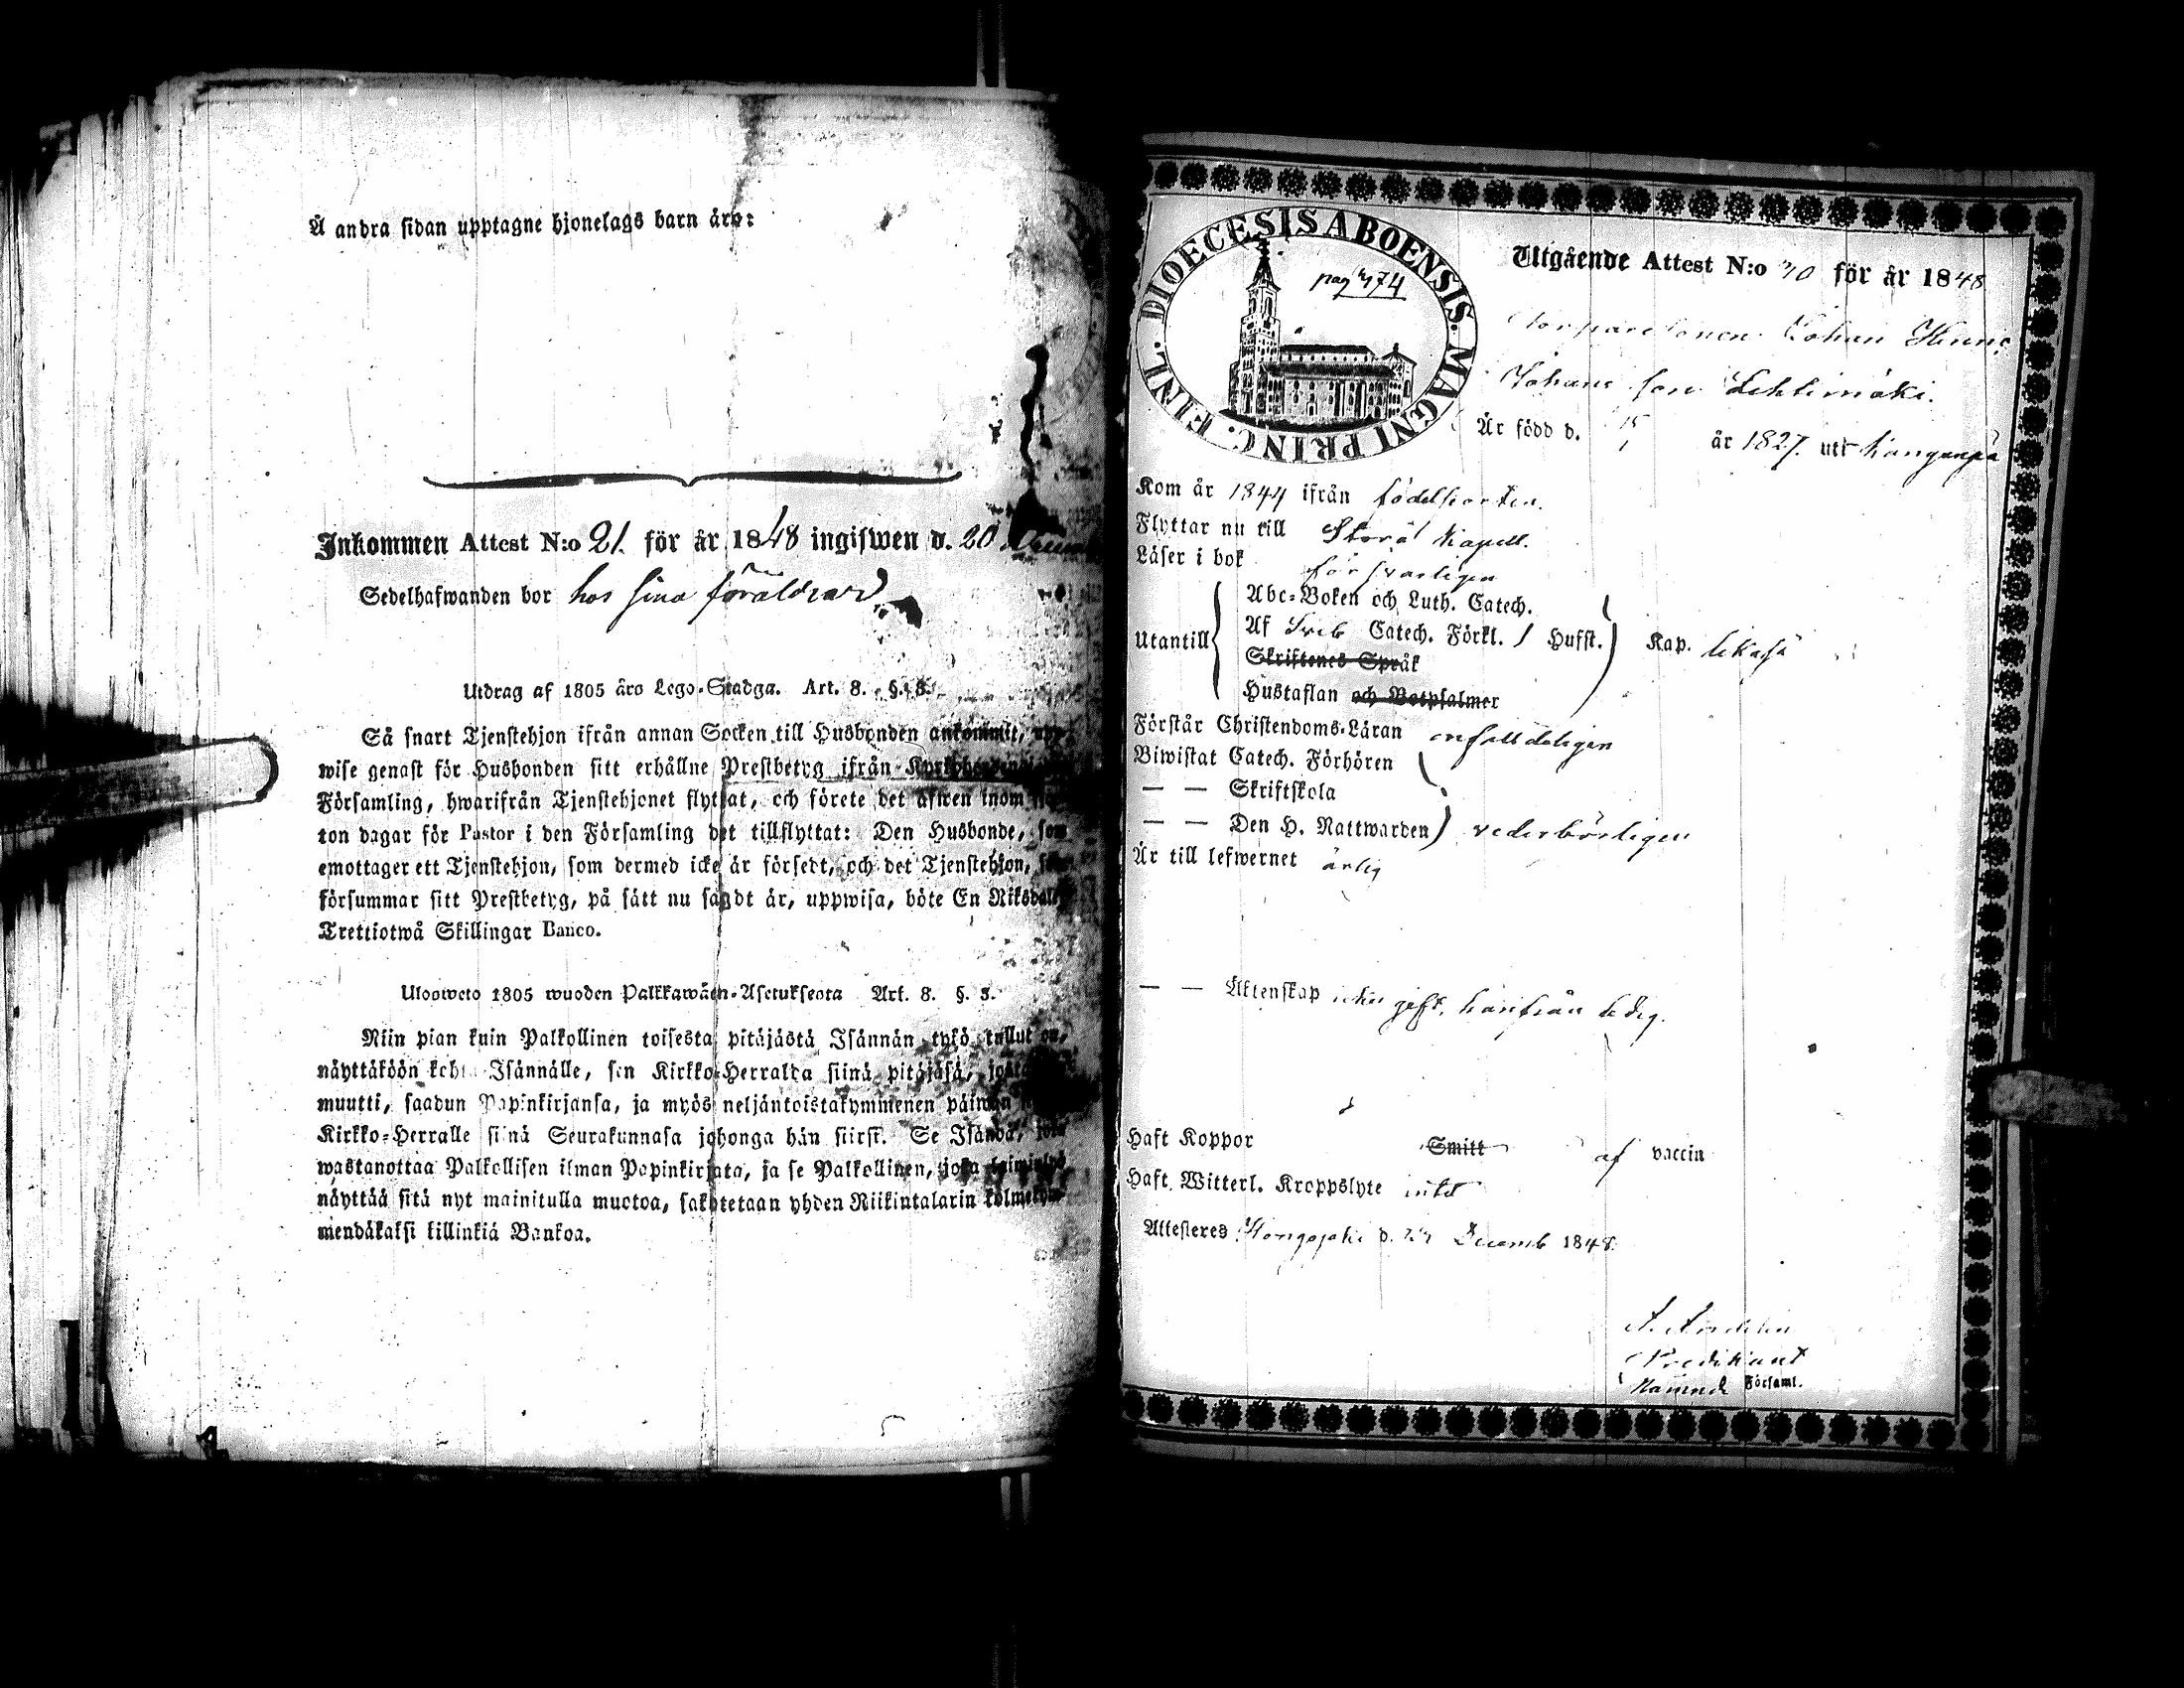 Å andra sidan upptagne hjonelags barn äro:
Inkommen Attest N:o 21. för år 1848 ingifwen d. 20
Sedelhafwanden bor hos sina föräldrar
Utdrag af 1805 års Lego-Stadga. Art. 8. §. 3.
Så snart Tjenstehjon ifrån annan Socken till Husbonden ankommit, upp-
wise genast för Husbonden sitt erhållne Prestbetyg ifrån
Församling, hwarifrån Tjenstehjonet flyttat, och förete det äfwen inom
ton dagar för Pastor i den Församling det tillflyttat: Den Husbonde, som
emottager ett Tjenstehjon, som dermed icke är försedt, och det Tjenstehjon,
försummar sitt Prestbetyg, på sätt nu sagdt är, uppwisa, böte En Riksdaler
Trettiotwå Skillingar Banco.
Ulosweto 1805 wuoden Palkkawäen-Asetuksesta Art. 8. §. 3.
Niin pian kuin Palkollinen toisesta pitäjästä Isännän tykö tullut on,
näyttäköön Isännälle, sen Kirkko-Herralda siinä pitäjäsä,
muutti, saadun Papinkirjansa, ja myös neljäntoistakymmenen päiwän
Kirkko-Herralle siinä Seurakunnasa johonga hän siirsi. Se Isändä, joka
wastanottaa Palkollisen ilman Papinkirjata, ja se Palkollinen, joka
näyttää sitä nyt mainitulla muotoa, sakotetaan yhden Riikintalarin kolmekym-
mendäkaksi killinkiä Bankoa.
DIOECESIS ABOENSIS. MAGNI PRINC. FINL.
pag 474
Utgående Attest N:o 70 för år 1848
Johan Henric
Johans son Lehtimäki.
Är född d. 15/1 år 1827. uti Kanganpä
Kom år 1844 ifrån födelseorten.
Flyttar nu till Storå Kapell.
Läser i bok försvarligen
Abc-Boken och Luth. Catech.
Utantill Af Sveb Catech. Förkl. Hufst. Kap. likaså
Skriftenes Språk
Hustaflan och Botpsalmer
Förstår Christendoms-Läran enfalldeligen
Biwistat Catech. Förhören
— — Skriftskola
— — Den H. Nattwarden vederbörligen
Är till lefwernet ärlig
— — Äktenskap icke gift, härifrån ledig.
Haft Koppor Smitt af vaccin
Haft Witterl. Kroppslyte intet
Attesteres Kangasjoki d. Decemb 1848.
Predikant
Församl.